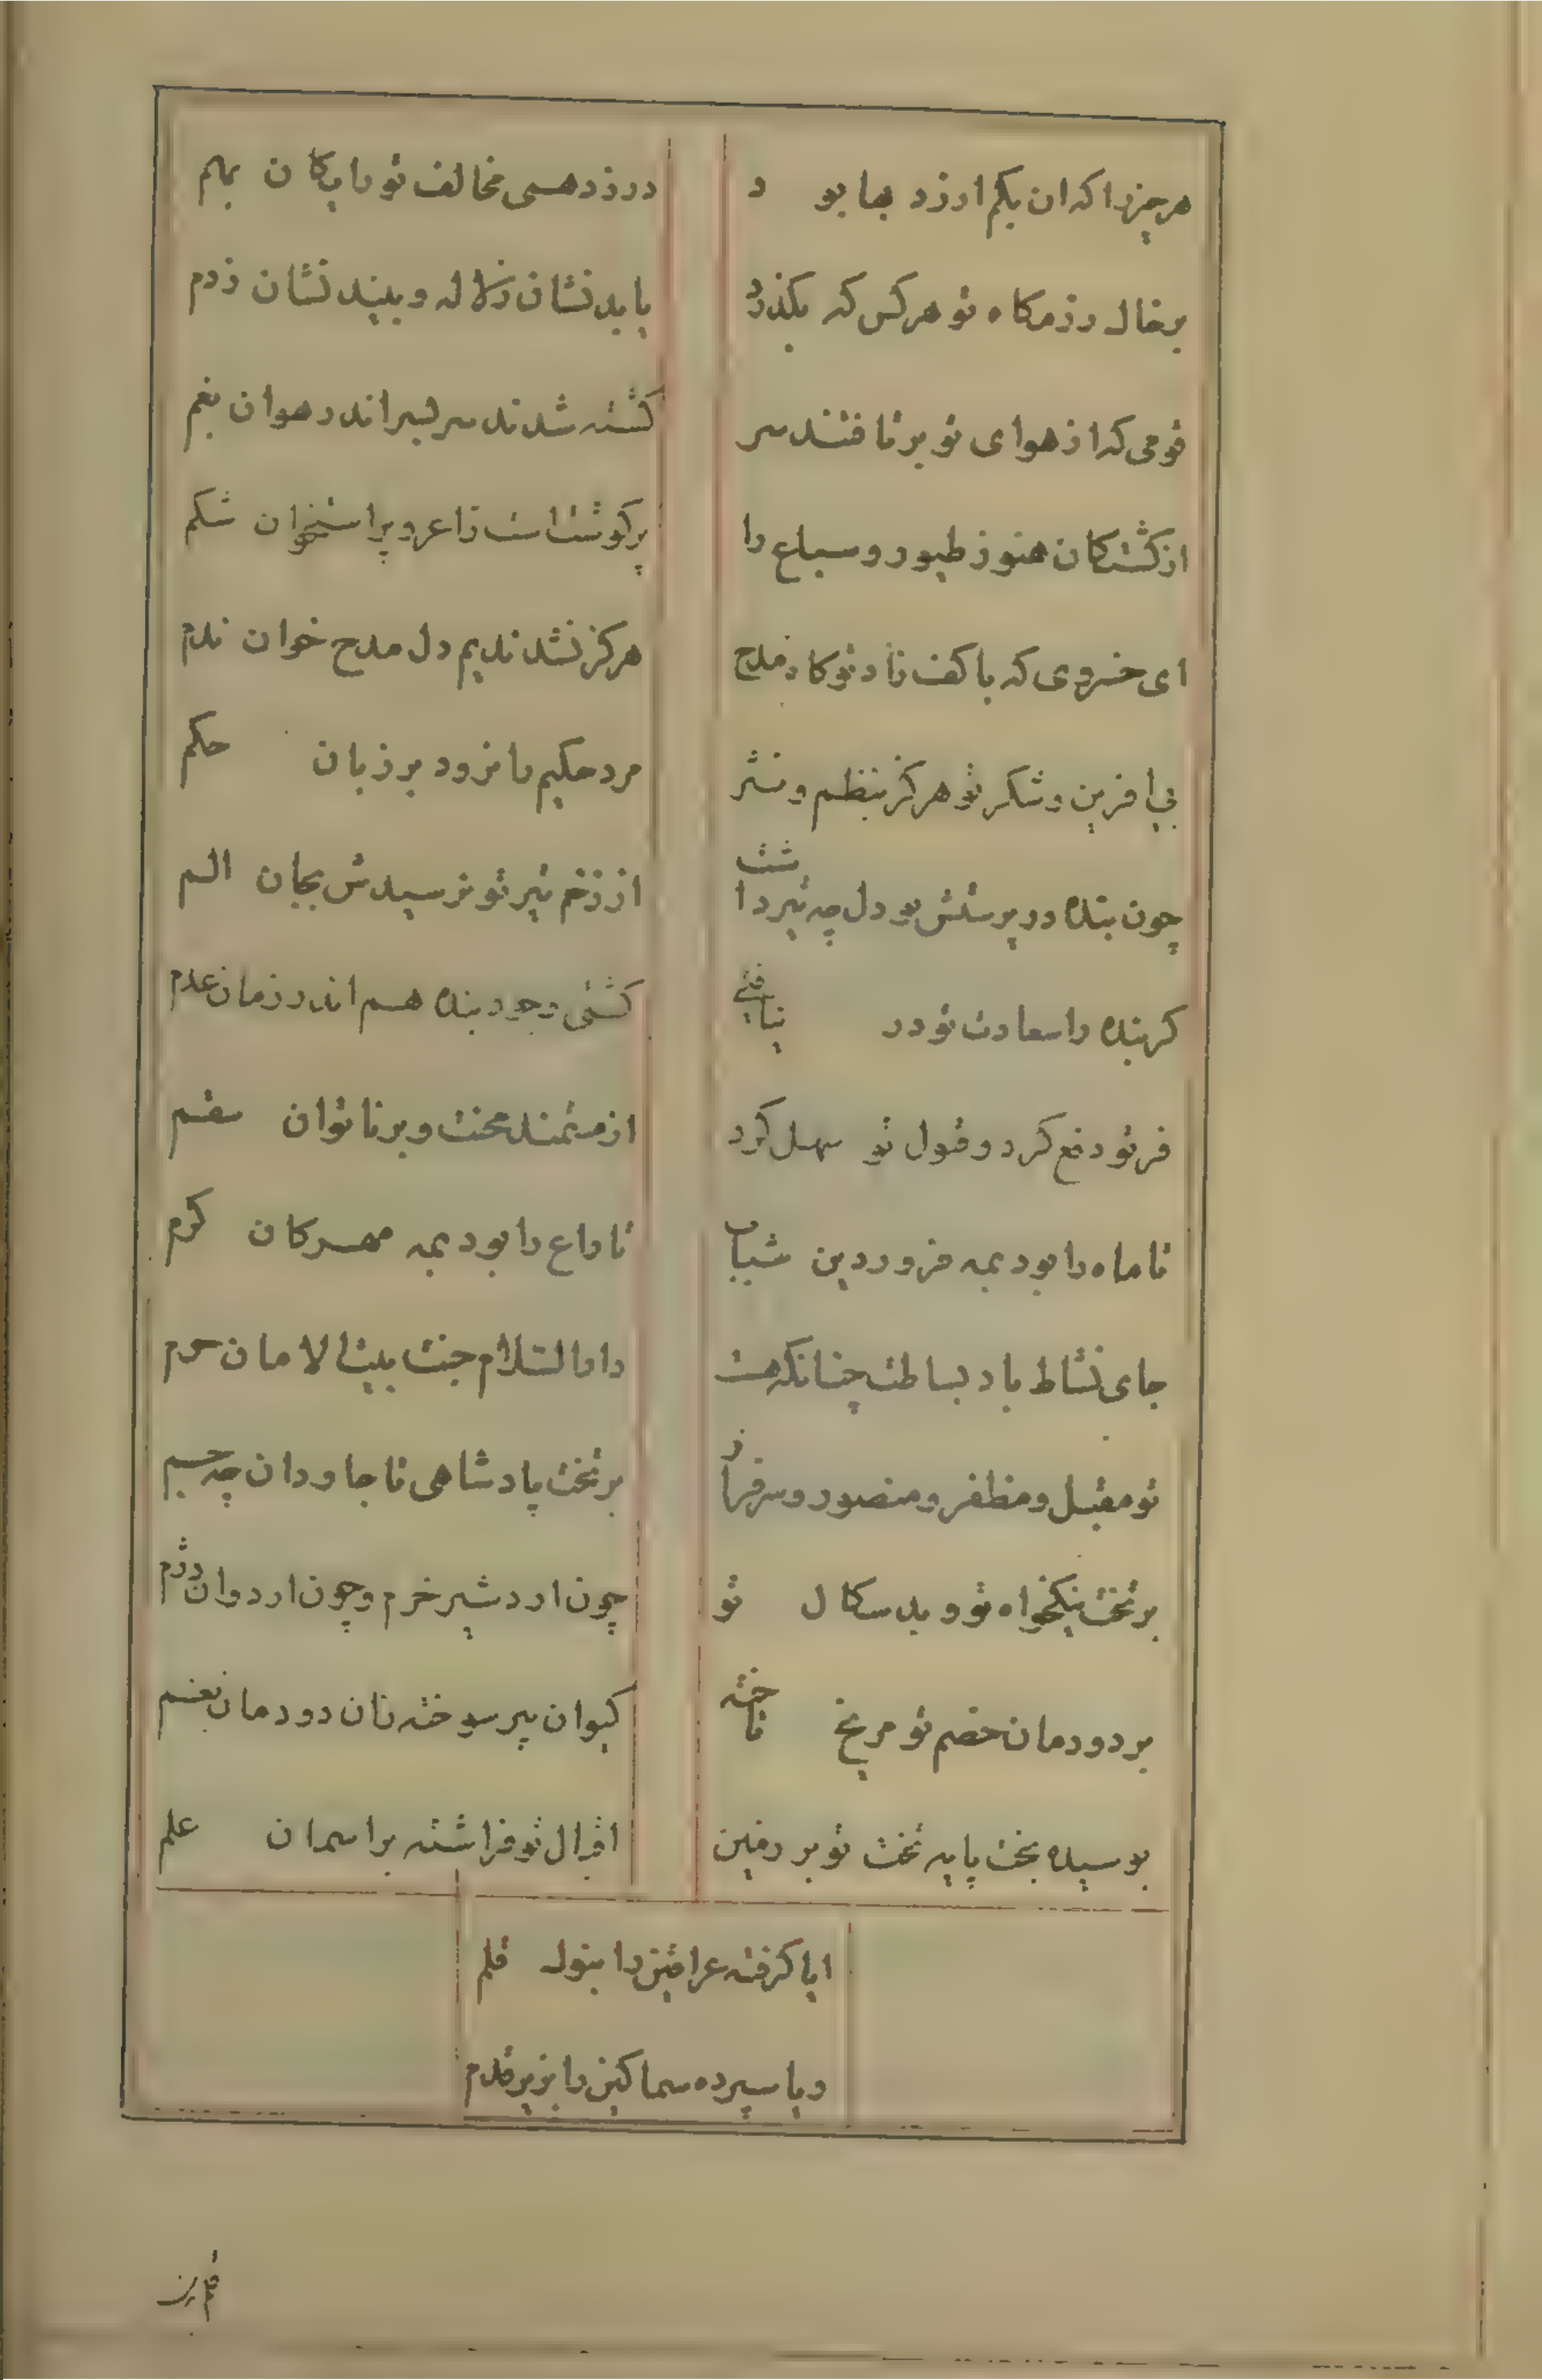 هر چیز را که ان بکم ارزد بها بود
در زد همی مخالف تو رایکان بهم
بر خاک رزمکاه تو هر کس که بکذرد
یابد نشان ز لاله و بیند نشان ز دم
قومی که از هوای تو بر تافتند سر
کشته شدند سر بسر اندر هوان بغم
از کشتکان هنوز طیور و سباع را
پر کوشت است زاعر و پر استخوان شکم
ای خسروی که با کف راد تو کاه مدح
هرکز نشد ندیم دل مدح خوان ندم
بی افرین و شکر تو هرکز بنظم و نثر
مرد حکیم نا نرود بر زبان حکم
چون بنده در پرستش تو دل چه تیر داشت
از زخم تیر تو نرسیدش بجان الم
کر بنده را سعادت تو در نیافتی
کشتی وجود بنده هم اندر زمان عدم
فر تو دفع کرد و قبول تو سهل کرد
از مستمند محنت و بر ناتوان سقم
تا ماه را بود بمه فروردین شباب
تا راع را بود بمه مهرکان کرم
جای نشاط باد بساطت چنانکه هست
دار السلام جنت بیت الامان حرم
تو مقبل و مظفر و منصور و سرفراز
بر تخت پادشاهی تا جاودان چه جم
بر تخت نیکخواه تو و بدسکال تو
چون اردشیر خرم و چون اردوان دژم
بر دودمان خصم تو مریخ تاخته
کیوان پیر سوخته زان دودمان بغم
بوسیده بخت پایه تخت تو بر زمین
اقبال تو فراشته بر اسمان علم
ایا کرفته عراقین را بنوک قلم
و یا سپرده سماکین را بزیر قدم